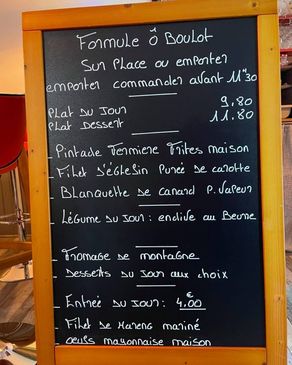 Formule Ô Boulot
Sur Place ou emporter
emporter commander avant 11h30
Plat du Jour 9,80
Plat Dessert 11.80
- Pintade Fermiere Frites maison
- Filet d'églefin Purée de carotte
- Blanquette de canard P. Vapeur
- Légume du Jour : endive au Beurre
- Fromage de montagne
- Desserts du Jour aux choix
- Entrée du Jour : 4,00 €
- Filet de Hareng mariné
- oeufs mayonnaise maison